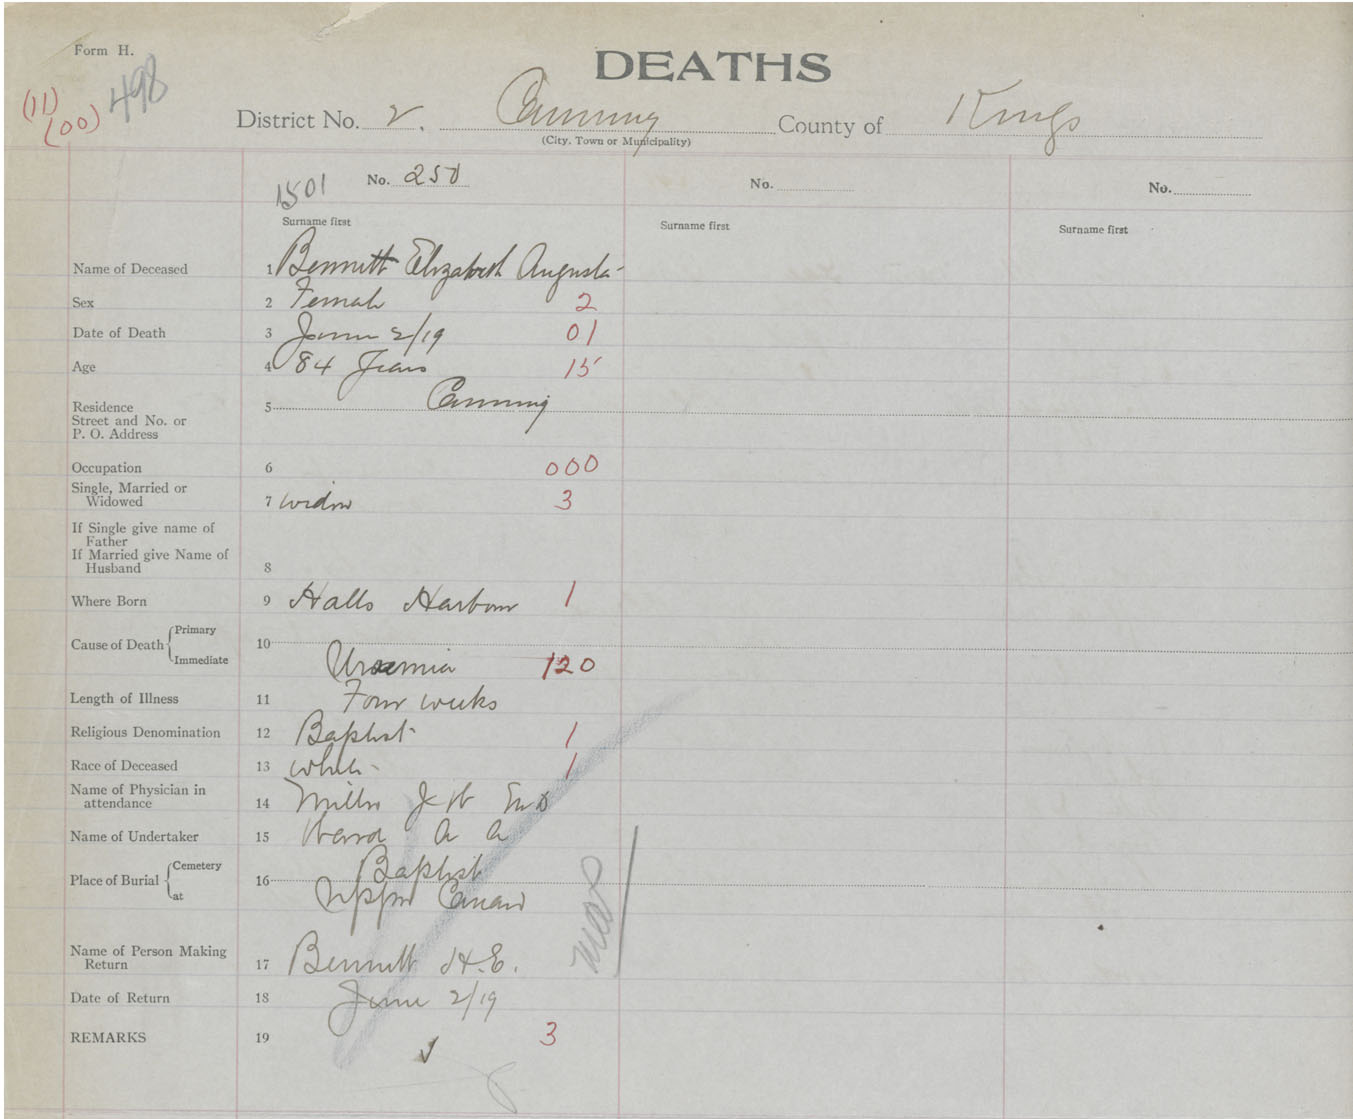 Form H.
DEATHS
(11)
(00)
498
District No. 2. Canning County of Kings
(City, Town or Municipality)
1501 No. 250 No. No.
Surname first Surname first Surname first
Name of Deceased 1 Bennett Elizabeth Augusta
Sex 2 Female 2
Date of Death 3 June 2/19 01
Age 4 84 Years 15
Residence 5 Canning
Street and No. or
P. O. Address
Occupation 6 000
Single, Married or
Widowed 7 widow 3
If Single give name of
Father
If Married give Name of
Husband 8
Where Born 9 Halls Harbour 1
Cause of Death Primary 10
Immediate Uraemia 120
Length of Illness 11 Four weeks
Religious Denomination 12 Baptist 1
Race of Deceased 13 White 1
Name of Physician in
attendance 14 Miller J W M D
Name of Undertaker 15 Ward A A
Place of Burial Cemetery 16 Baptist
at Upper Canard
Name of Person Making
Return 17 Bennett H.E.
Date of Return 18 June 2/19
REMARKS 19 3